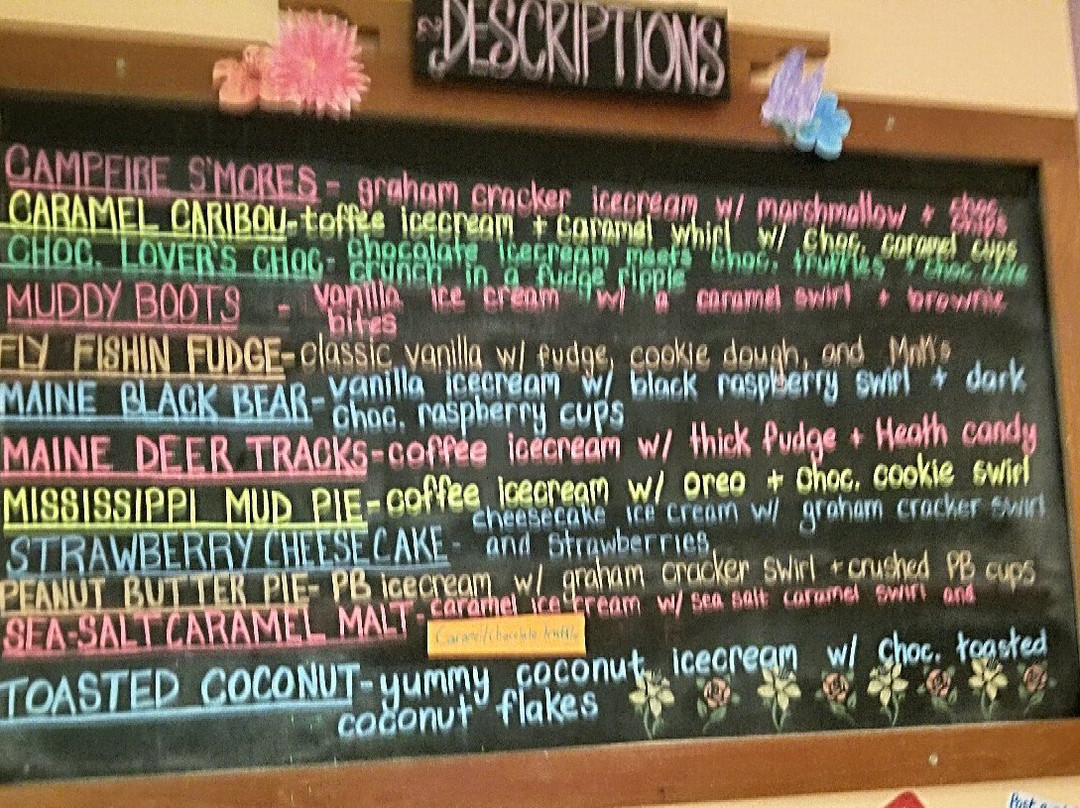 DESCRIPTIONS
CAMPFIRE S'MORES - graham cracker icecream w/ marshmallow + choc. chips
CARAMEL CARIBOU - toffee icecream + caramel whirl w/ choc. caramel cups
CHOC. LOVER'S CHOC - chocolate icecream meets choc. truffles + choc
crunch in a fudge ripple
MUDDY BOOTS - vanilla ice cream w/ a caramel swirl + brownie
bites
FLY FISHIN FUDGE - classic vanilla w/ fudge, cookie dough, and MnM's
MAINE BLACK BEAR - vanilla icecream w/ black raspberry swirl + dark
choc. raspberry cups
MAINE DEER TRACKS - coffee icecream w/ thick fudge + Heath candy
MISSISSIPPI MUD PIE - coffee icecream w/ oreo + choc. cookie swirl
cheesecake ice cream w/ graham cracker swirl
STRAWBERRY CHEESECAKE - and strawberries
PEANUT BUTTER PIE - PB icecream w/ graham cracker swirl + crushed PB cups
SEA-SALT CARAMEL MALT - caramel ice cream w/ sea salt caramel swirl and
Caramel/chocolate truffle
TOASTED COCONUT - yummy coconut icecream w/ choc. toasted
coconut flakes